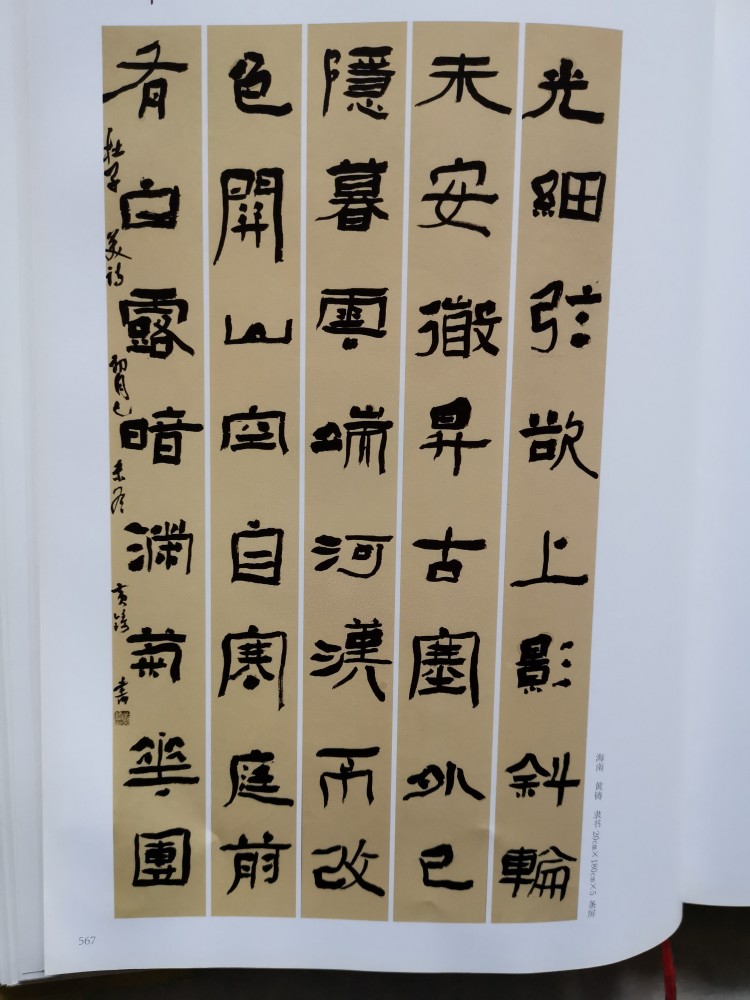 光細弦欲上影斜輪
未安徽昇古塞外已
隱暮雲端河漢不改
色開山空自寒庭前
有白露暗滿菊華團
杜子美詩初月乙未冬黄鑄書
海南 黄铸 隶书 20cm×180cm×5 条屏
567